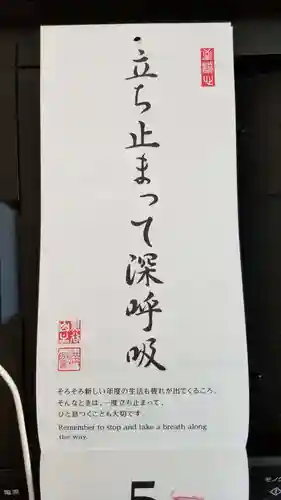 立ち止まって深呼吸
そろそろ新しい年度の生活も疲れが出てくるころ。
そんなときは、一度立ち止まって、
ひと息つくことも大切です
Remember to stop and take a breath along
the way.
5
電源
モノ